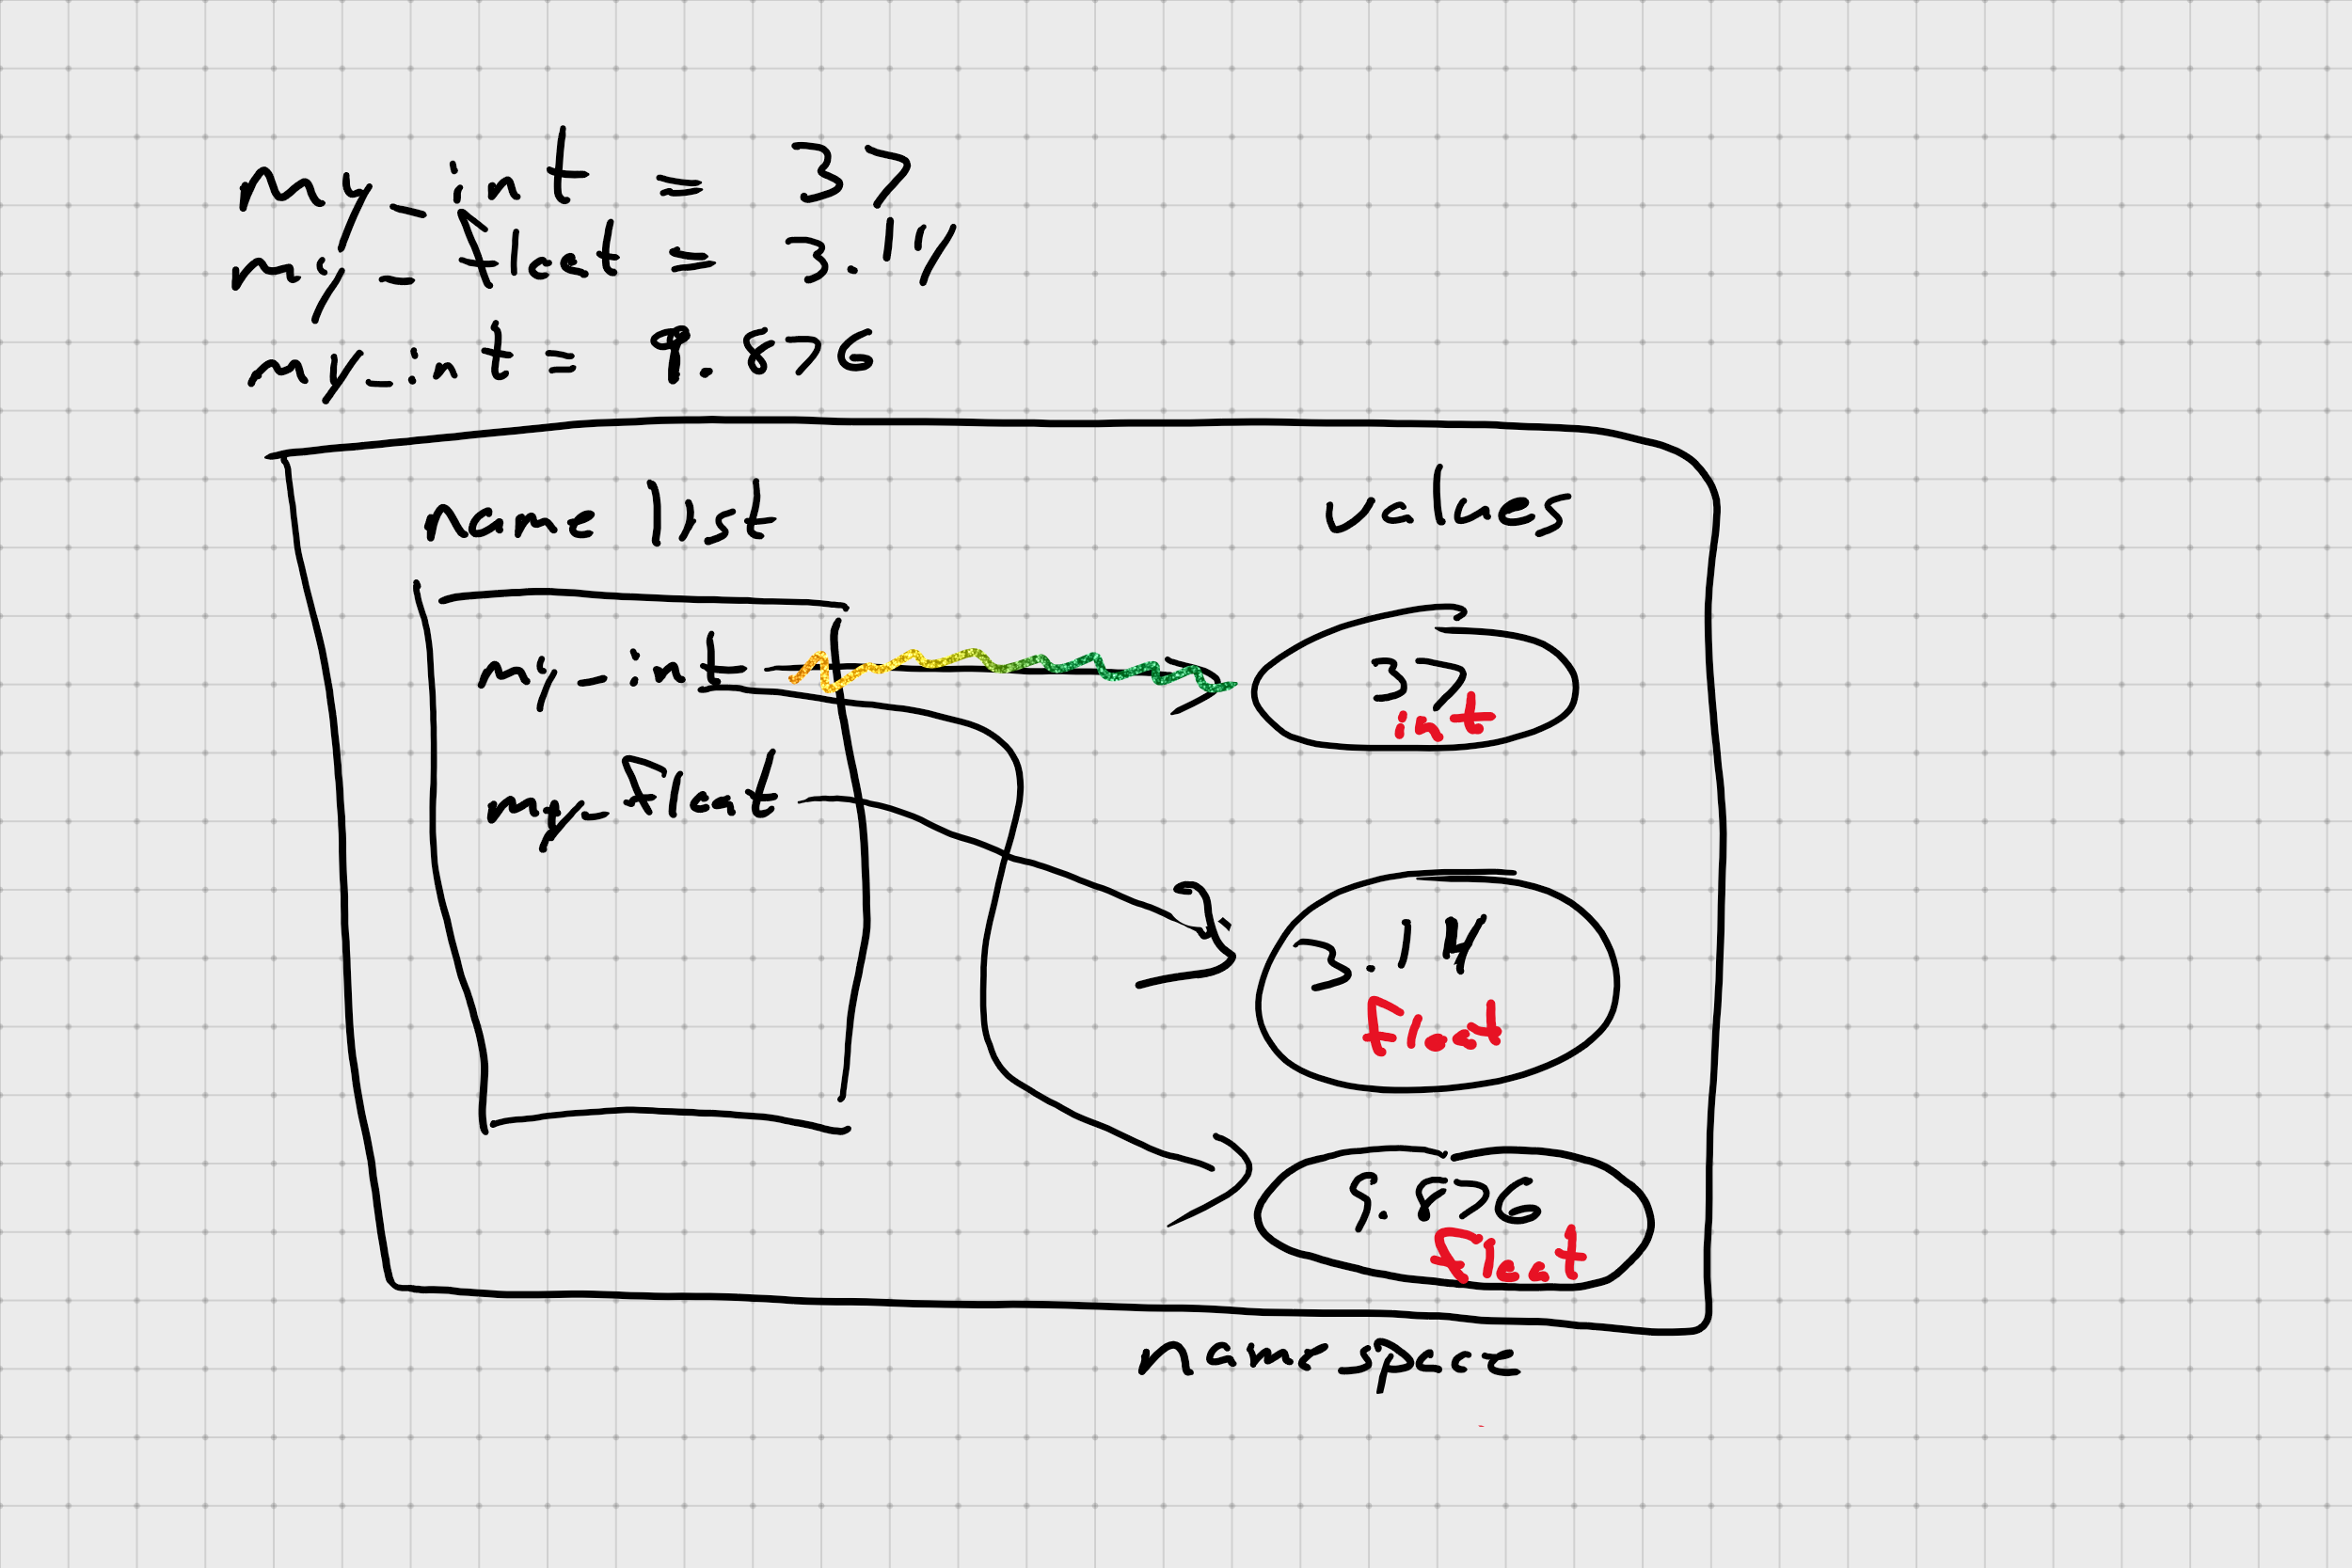 my_int = 37
my_float = 3.14
my_int = 9.876
name list
values
my_int
37
int
my_float
3.14
float
9.876
float
namespace